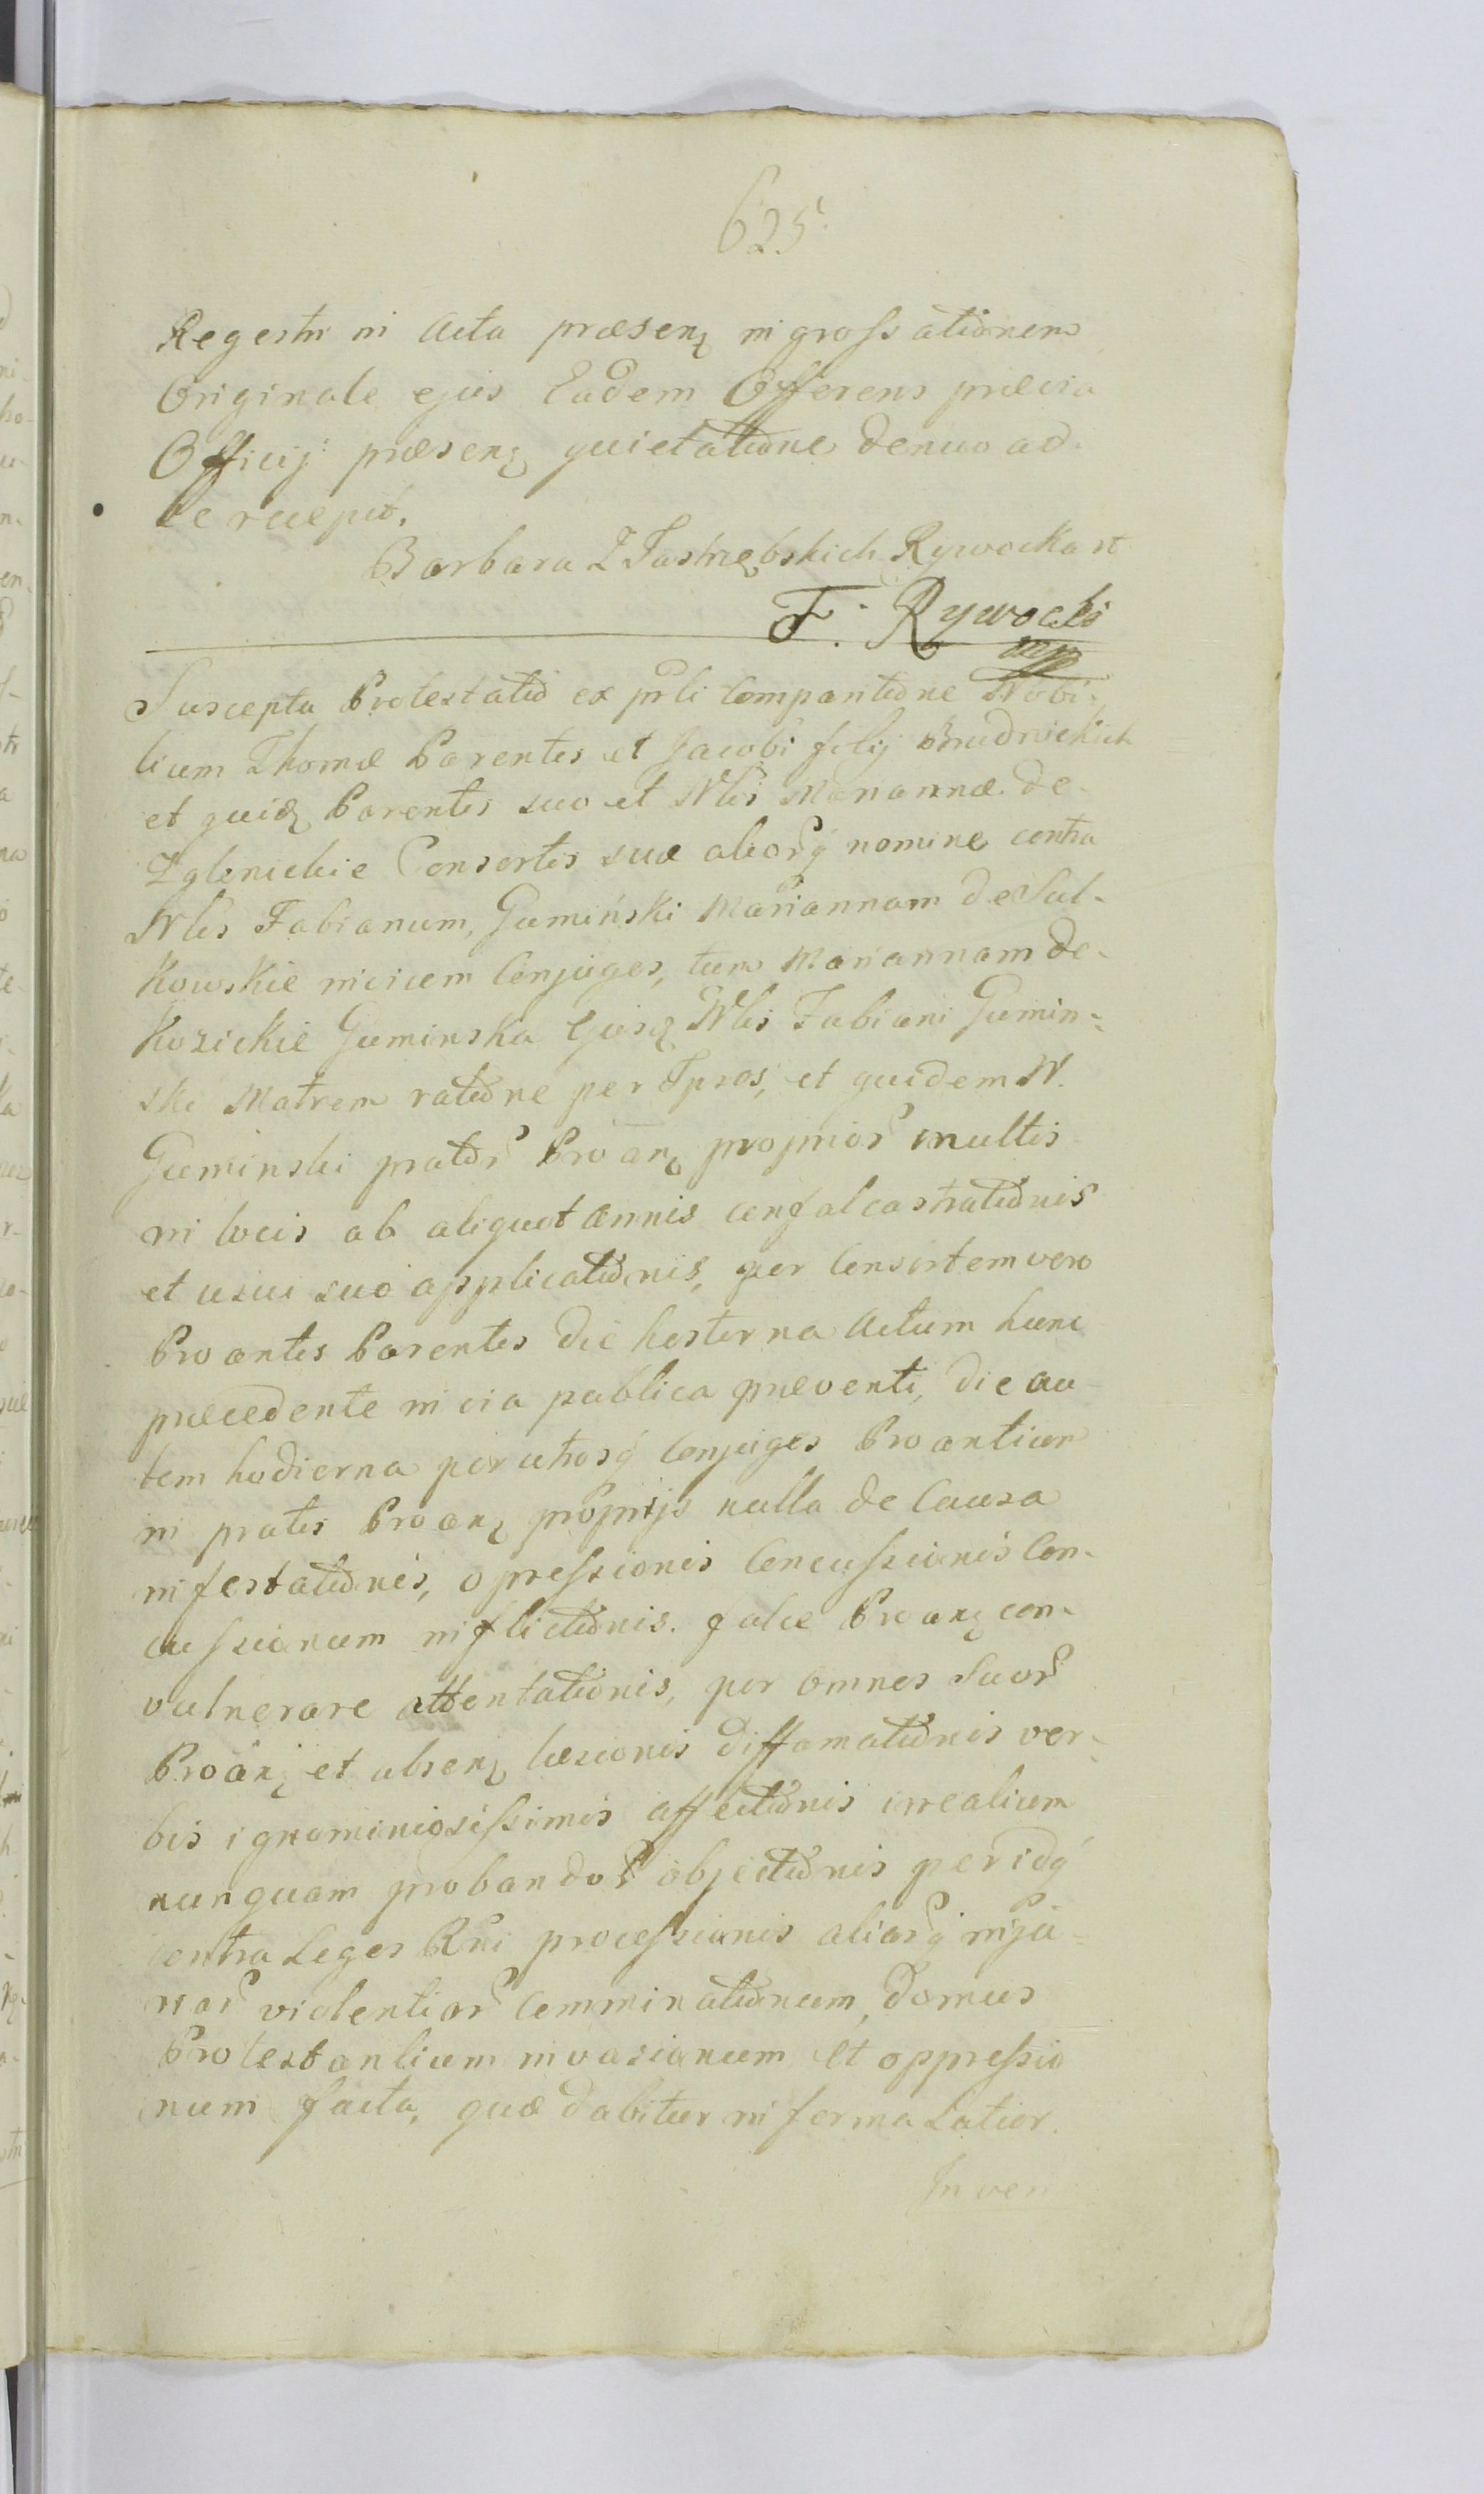 625.
Regestri in Acta præsenꝫ ingrossationem
Originale ejus Eadem Offerens prævia
Officij præsenꝫ quietatione denuo ad
se recepit.
Barbara Z Jastrzębskich Rywocka st
F. Rywocki
mp
Suscepta Protestatio ex prli Comparitione Nobi-
lium Thomæ Parentis et Jacobi filij Brudnickich
et quidꝫ Parentis suo et Nlis Mariannæ de
Zglenickie Consortis suæ aliorꝫ nomine contra
Nles Fabianum, Gumiński Mariannam de Sul-
kowskie invicem Conjuges, tum Mariannam de
Kozickie Guminska Ejusꝫ Nlis Fabiani Gumin-
ski Matrem ratione per Ipsos, et quidem N.
Guminski pratorꝰ Proanꝫ propriorꝰ multis
in locis ab aliquot annis confalcastrationis
et usui suo applicationis, per Consortem vero
Proantis Parentis die hesterna Actum hunc
præcedente in via publica præventi, die au
tem hodierna per utrosq̃ Conjuges Proantium
in pratis Proanꝫ proprijs nulla de Causa
infestationis, opressionis Concussionis Con-
cussionum inflictionis. falce Proanꝫ con-
vulnerare attentationis, per omnes Suorꝰ
Proanꝫ et absenꝫ læsionis diffamationis ver-
bis ignominiosissimis affectionis irrealium
nunquam probandorꝰ objectionis per idq̃
contra Leges Rni processionis aliarꝰq̃ inju-
riarꝰ violentiarꝰ Comminationum, Domus
Protestantium invasionum et oppressio
num facta, quæ dabitur in forma Latior.
Inven